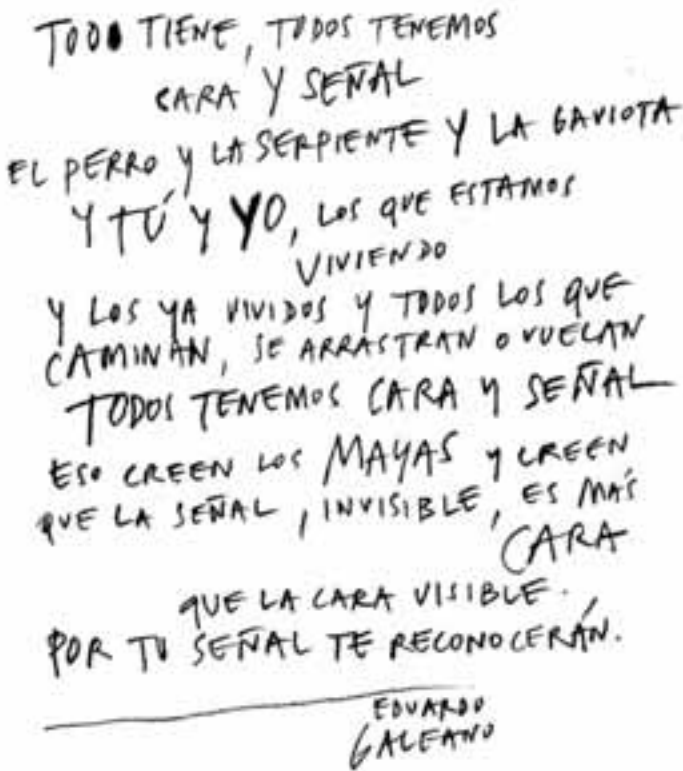 TODO TIENE, TODOS TENEMOS
CARA Y SEÑAL
EL PERRO Y LA SERPIENTE Y LA GAVIOTA
Y TÚ Y YO, LOS QUE ESTAMOS
VIVIENDO
Y LOS YA VIVIDOS Y TODOS LOS QUE
CAMINAN, SE ARRASTRAN O VUELAN
TODOS TENEMOS CARA Y SEÑAL
ESO CREEN LOS MAYAS Y CREEN
QUE LA SEÑAL, INVISIBLE, ES MÁS
CARA
QUE LA CARA VISIBLE.
POR TU SEÑAL TE RECONOCERÁN.
EDUARDO
GALEANO